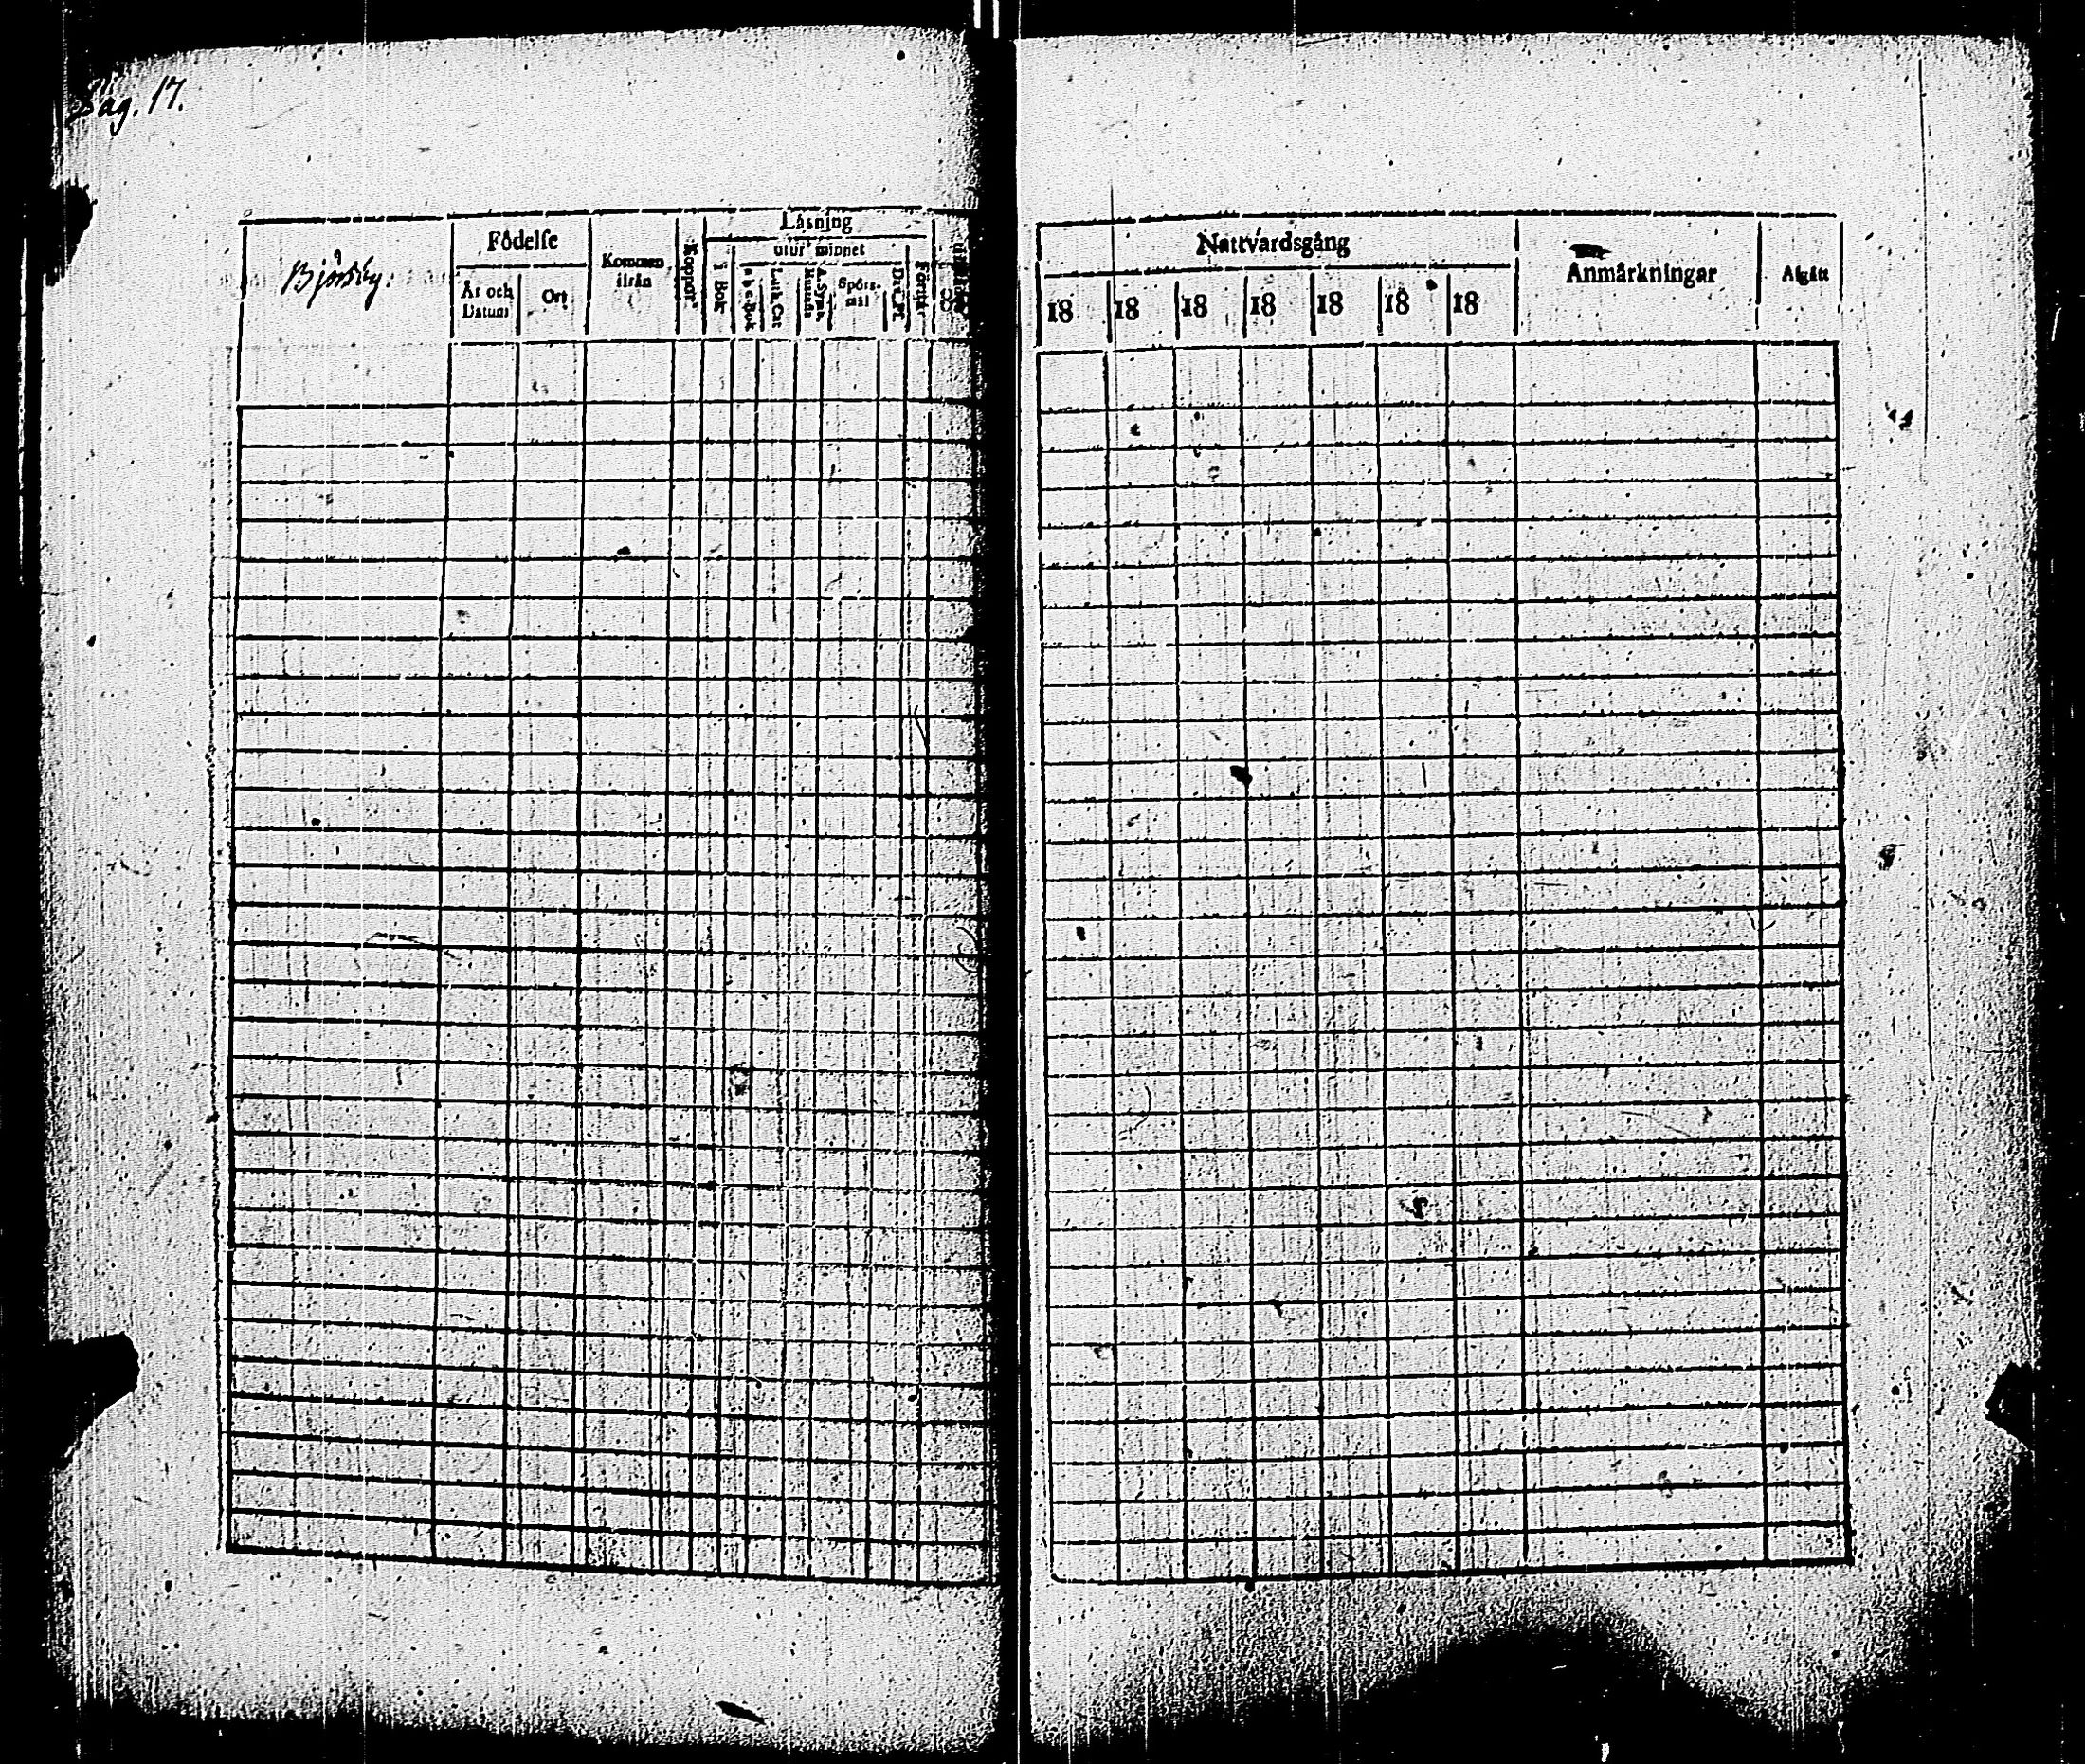 Pag. 17.
Björsby.
Födelse
År och Datum
Ort
Kommen
ifrån
Koppor
Låsning
i Bok
utur minnet
a b c-Bok
Luth. Cat
Spörs-
mål
Dav. Ps.
Förstår
Nattvardsgång
18 18 18 18 18 18 18
Anmårkningar
Afgått